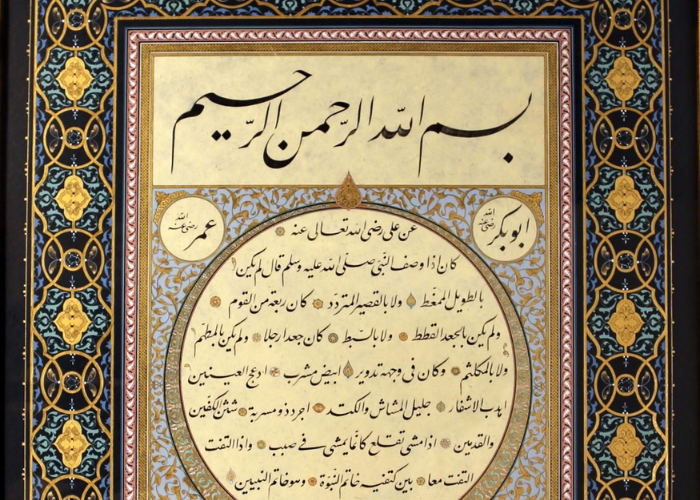 بسم الله الرحمن الرحيم
ابوبكر رضى الله عنه
عمر رضى الله عنه
عن على رضى الله تعالى عنه
كان اذا وصف النبى صلى الله عليه وسلم قال لم يكن
بالطويل الممغط ولا بالقصير المتردد كان ربعة من القوم
ولم يكن بالجعد القطط ولا بالسبط كان جعدا رجلا ولم يكن بالمطهم
ولا بالمكلثم وكان فى وجهه تدوير ابيض مشرب ادعج العينين
اهدب الاشفار جليل المشاش والكتد اجرد ذو مسربة شثن الكفين
والقدمين اذا مشى تقلع كانما يمشى فى صبب واذا التفت
التفت معا بين كتفيه خاتم النبوة وهو خاتم النبيين